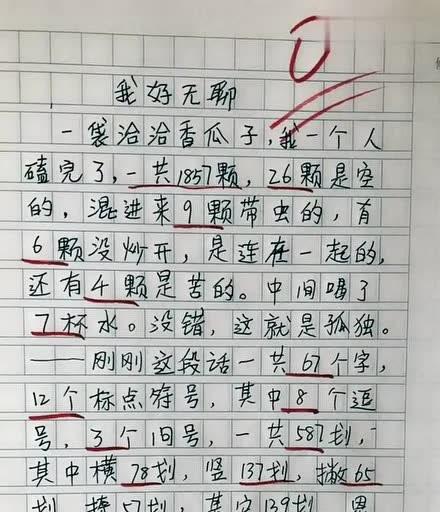 我好无聊
一袋洽洽香瓜子,我一个人
磕完了,一共1857颗,26颗是空
的,混进来9颗带虫的,有
6颗没炒开,是连在一起的,
还有4颗是苦的。中间喝了
7杯水。没错,这就是孤独。
——刚刚这段话一共67个字,
12个标点符号,其中8个逗
号,3个句号,一共587划,
其中横78划,竖137划,撇65
划,捺57划,其它139划,